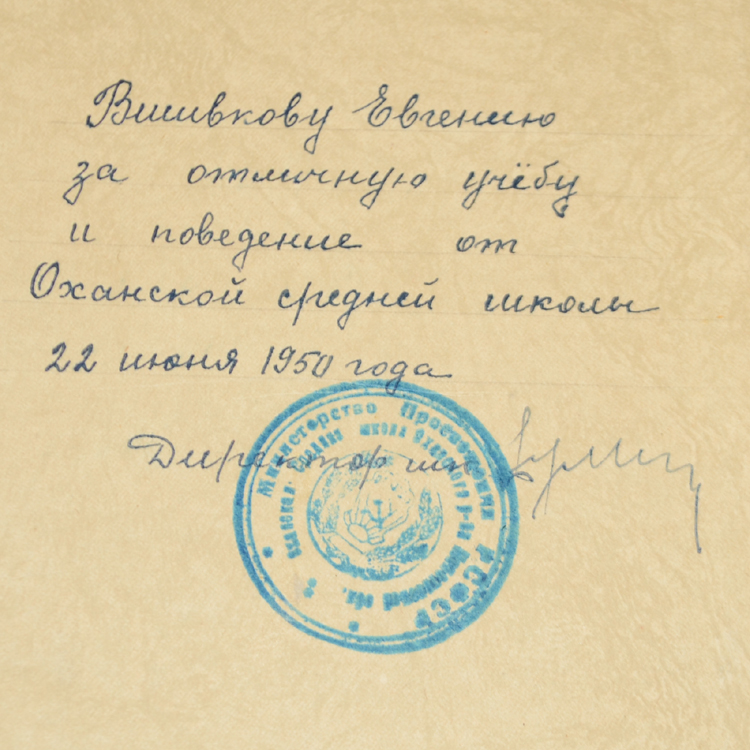 Вшивкову Евгению
за отличную учёбу
и поведение от
Оханской средней школы
22 июня 1950 года
Директор шк
Министерство Просвещения РСФСР
средняя школа Оханского р-на обл.